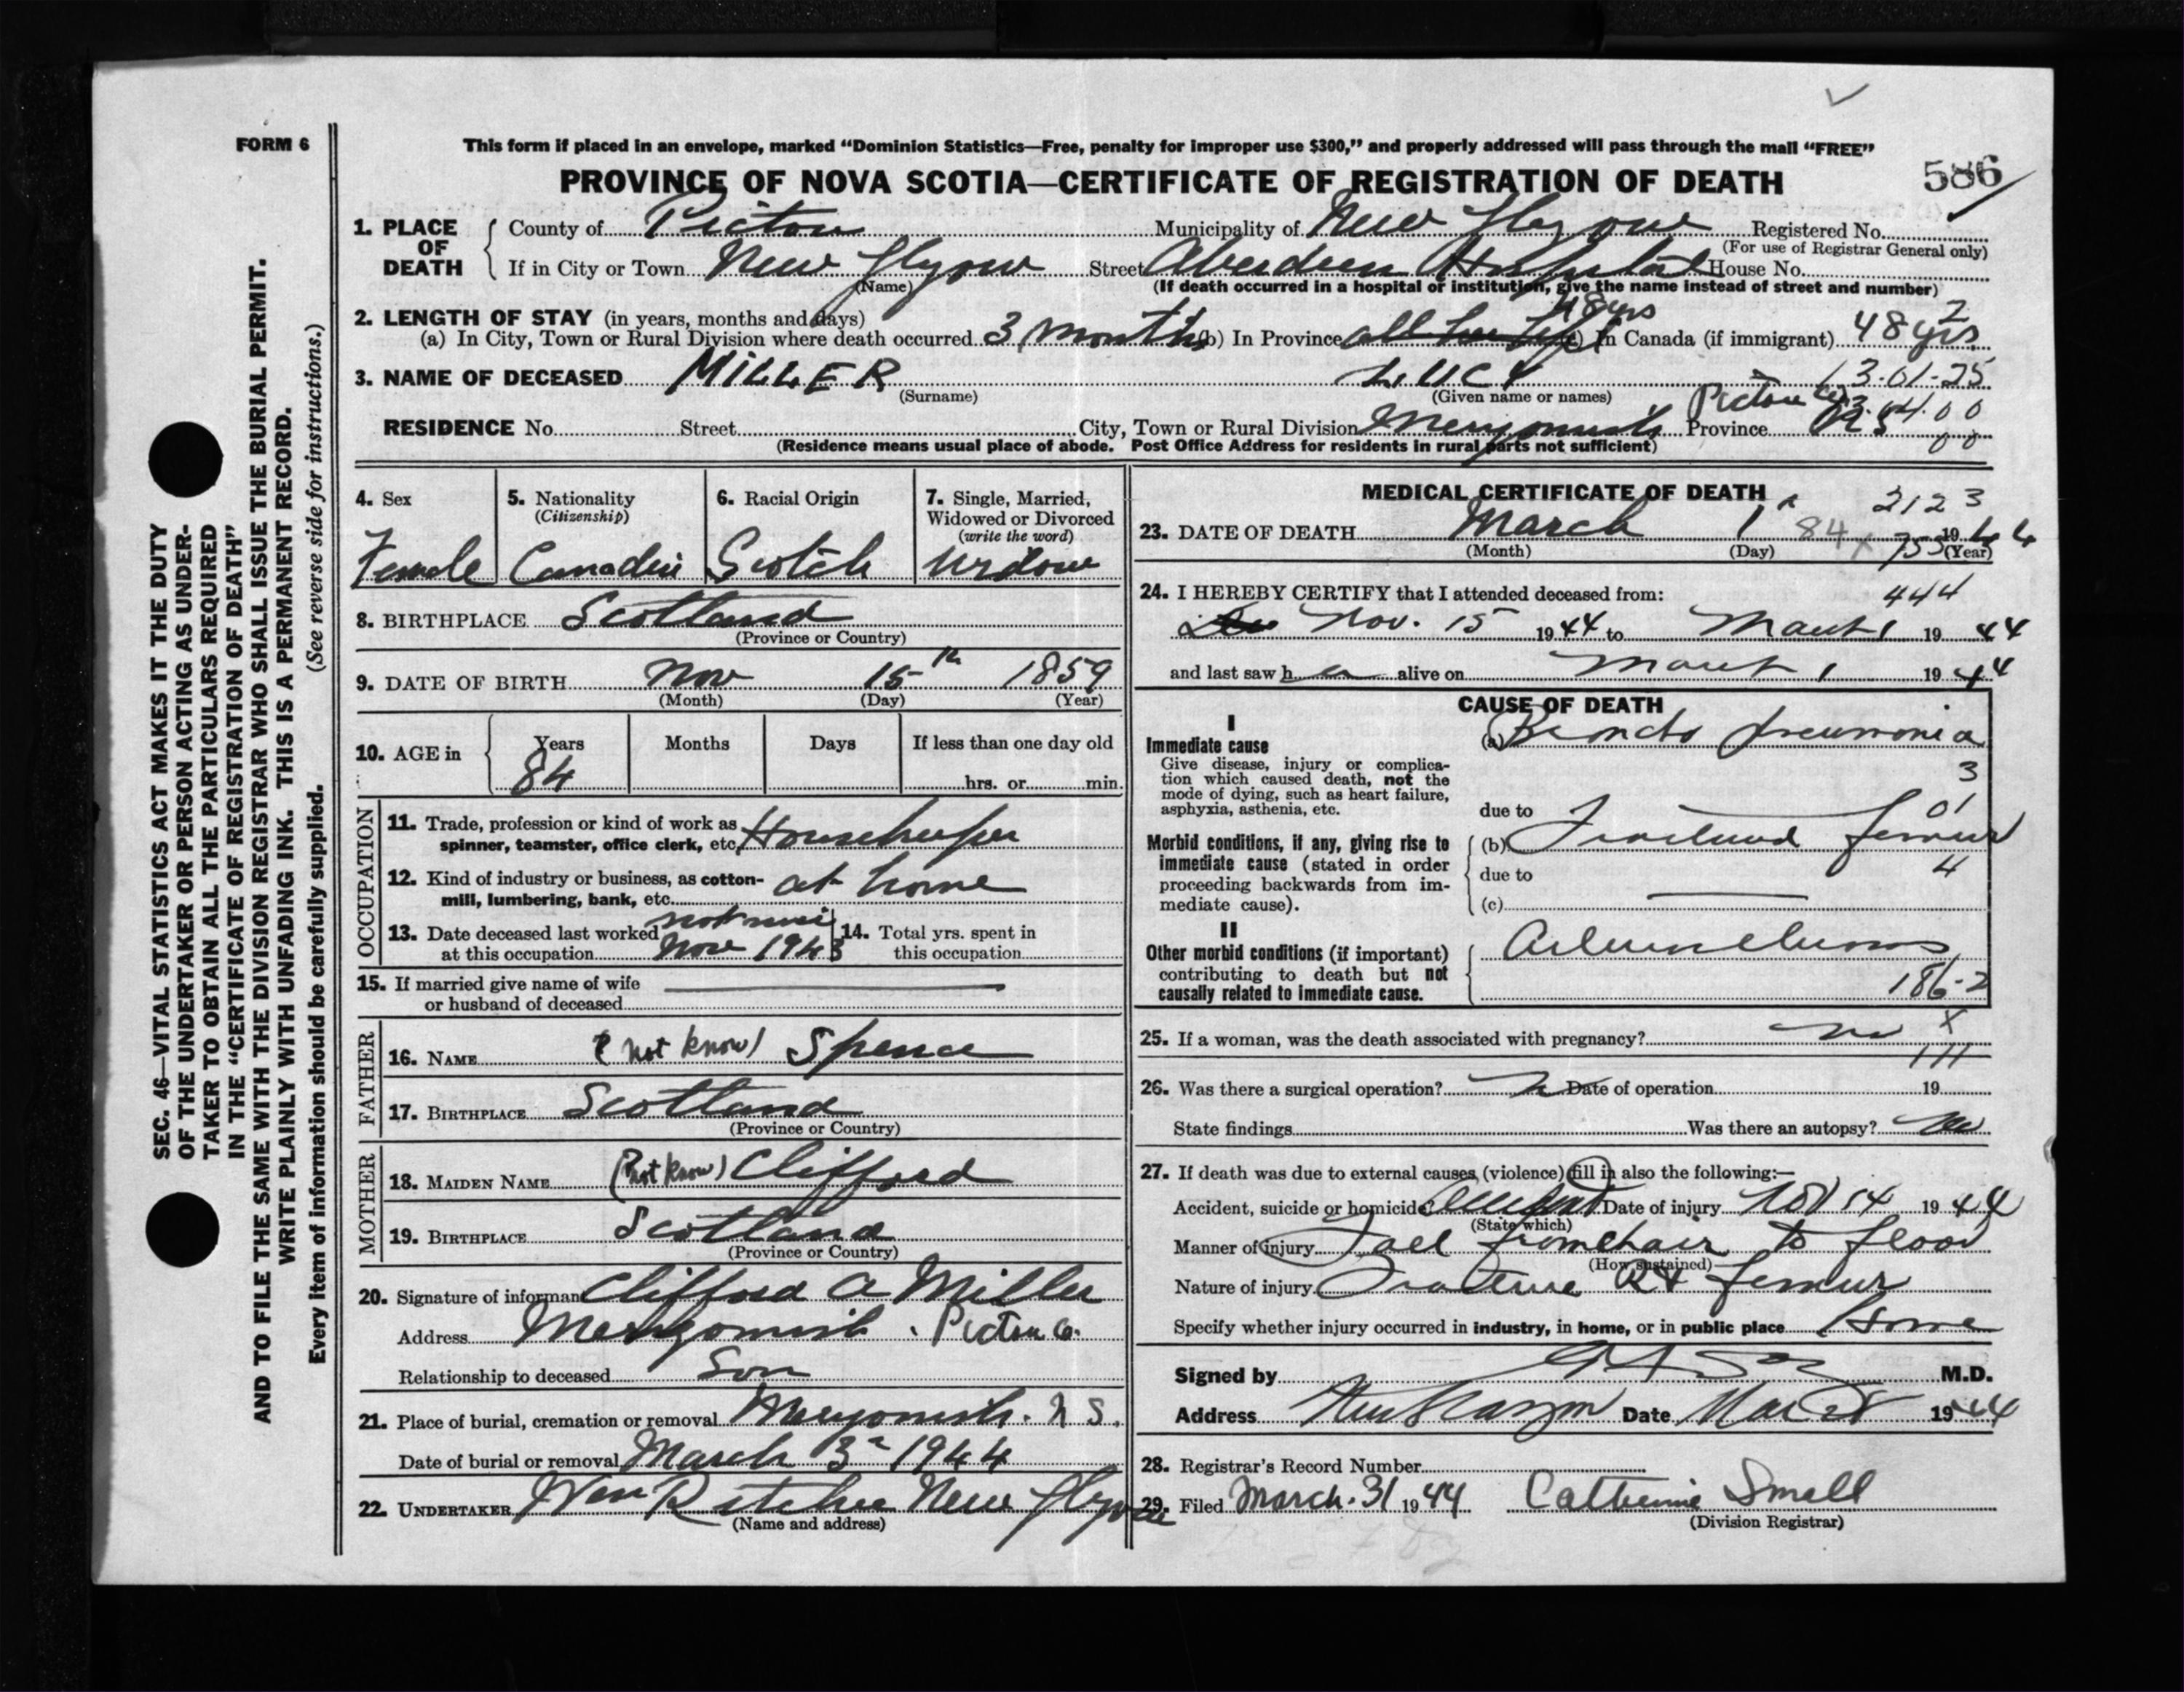 FORM 6
This form if placed in an envelope, marked "Dominion Statistics—Free, penalty for improper use $300," and properly addressed will pass through the mail "FREE"
PROVINCE OF NOVA SCOTIA—CERTIFICATE OF REGISTRATION OF DEATH
586
1. PLACE OF DEATH
County of Pictou Municipality of New Glasgow Registered No.
(For use of Registrar General only)
If in City or Town New Glasgow Street Aberdeen Hospital House No.
(Name) (If death occurred in a hospital or institution, give the name instead of street and number)
2. LENGTH OF STAY (in years, months and days) 48 yrs
(a) In City, Town or Rural Division where death occurred 3 months (b) In Province all her life (c) In Canada (if immigrant) 48 yrs
3. NAME OF DECEASED MILLER LUCY 13-01-25
(Surname) (Given name or names)
RESIDENCE No. Street City, Town or Rural Division Merigomish Pictou Co. Province N S
(Residence means usual place of abode. Post Office Address for residents in rural parts not sufficient)
SEC. 46—VITAL STATISTICS ACT MAKES IT THE DUTY
OF THE UNDERTAKER OR PERSON ACTING AS UNDER-
TAKER TO OBTAIN ALL THE PARTICULARS REQUIRED
IN THE "CERTIFICATE OF REGISTRATION OF DEATH"
AND TO FILE THE SAME WITH THE DIVISION REGISTRAR WHO SHALL ISSUE THE BURIAL PERMIT.
WRITE PLAINLY WITH UNFADING INK. THIS IS A PERMANENT RECORD.
Every item of information should be carefully supplied. (See reverse side for instructions.)
4. Sex Female
5. Nationality (Citizenship) Canadin
6. Racial Origin Scotch
7. Single, Married, Widowed or Divorced (write the word) Widow
8. BIRTHPLACE Scotland
(Province or Country)
9. DATE OF BIRTH Nov 15th 1859
(Month) (Day) (Year)
10. AGE in Years Months Days If less than one day old
84 hrs. or min.
OCCUPATION
11. Trade, profession or kind of work as spinner, teamster, office clerk, etc. Housekeeper
12. Kind of industry or business, as cotton-mill, lumbering, bank, etc. at home
13. Date deceased last worked at this occupation Nov 1943
14. Total yrs. spent in this occupation
15. If married give name of wife
or husband of deceased
FATHER
16. NAME (not know) Spence
17. BIRTHPLACE Scotland
(Province or Country)
MOTHER
18. MAIDEN NAME (not know) Clifford
19. BIRTHPLACE Scotland
(Province or Country)
20. Signature of informant Clifford A Miller
Address Merigomish. Pictou Co.
Relationship to deceased Son
21. Place of burial, cremation or removal Merigomish. N S.
Date of burial or removal March 3 1944
22. UNDERTAKER Wm Ritchie New Glasgow
(Name and address)
MEDICAL CERTIFICATE OF DEATH 2123
23. DATE OF DEATH March 1 84 1944
(Month) (Day) (Year)
24. I HEREBY CERTIFY that I attended deceased from: 444
Nov. 15 1944 to March 1 1944
and last saw her alive on March 1 1944
CAUSE OF DEATH
I
Immediate cause
Give disease, injury or complica-
tion which caused death, not the
mode of dying, such as heart failure,
asphyxia, asthenia, etc.
(a) Broncho pneumonia
3
due to 01
Morbid conditions, if any, giving rise to
immediate cause (stated in order
proceeding backwards from im-
mediate cause).
(b) Fractured femur
due to 4
(c)
II
Other morbid conditions (if important)
contributing to death but not
causally related to immediate cause.
186-2
25. If a woman, was the death associated with pregnancy? no X
111
26. Was there a surgical operation? Date of operation 19
State findings Was there an autopsy? No
27. If death was due to external causes (violence) fill in also the following:—
Accident, suicide or homicide? Accident Date of injury Nov 14 1944
(State which)
Manner of injury Fall from chair to floor
(How sustained)
Nature of injury Fracture Rt femur
Specify whether injury occurred in industry, in home, or in public place Home
Signed by M.D.
Address New Glasgow Date 1944
28. Registrar's Record Number
29. Filed March. 31 1944 Catherine Small
(Division Registrar)